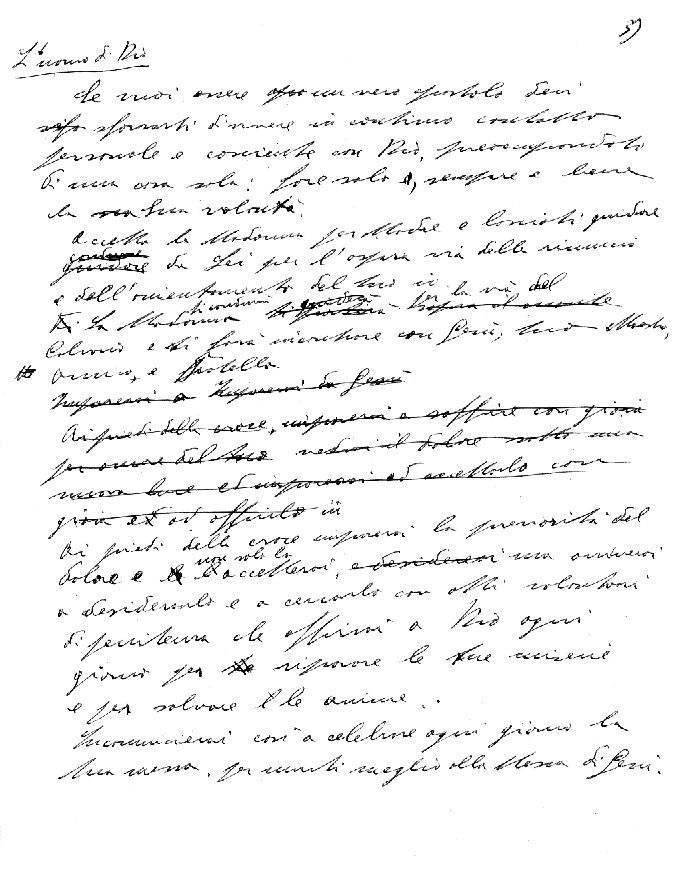 5)
L'uomo di Dio
Se vuoi essere un vero apostolo devi
sforzarti di vivere in continuo contatto
personale e cosciente con Dio, preoccupandoti
di una cosa sola: fare solo, sempre e bene
la Sua volontà.
Accetta la Madonna per Madre e lasciati guidare
guidare da Lei per l'aspra via della rinuncia
e dell'annientamento del tuo io
La Madonna ti condurrà per la via del
Calvario e ti farà incontrare con Gesù, tuo Maestro,
Amico, e Fratello
Imparerai a Imparerai da Gesù
Ai piedi della croce, imparerai a soffrire con gioia
per amore del tuo vedrai il dolore sotto una
nuova luce ed imparerai ad accettarlo con
gioia ed ad offrirlo in
Ai piedi della croce imparerai la preziosità del
dolore e non solo lo accetterai, e desidererai ma arriverai
a desiderarlo e a cercarlo con atti volontari
di penitenza che offrirai a Dio ogni
giorno per riparare le tue miserie
e per salvare le anime.
Incomincerai così a celebrare ogni giorno la
tua messa, per unirti meglio alla Messa di Gesù.